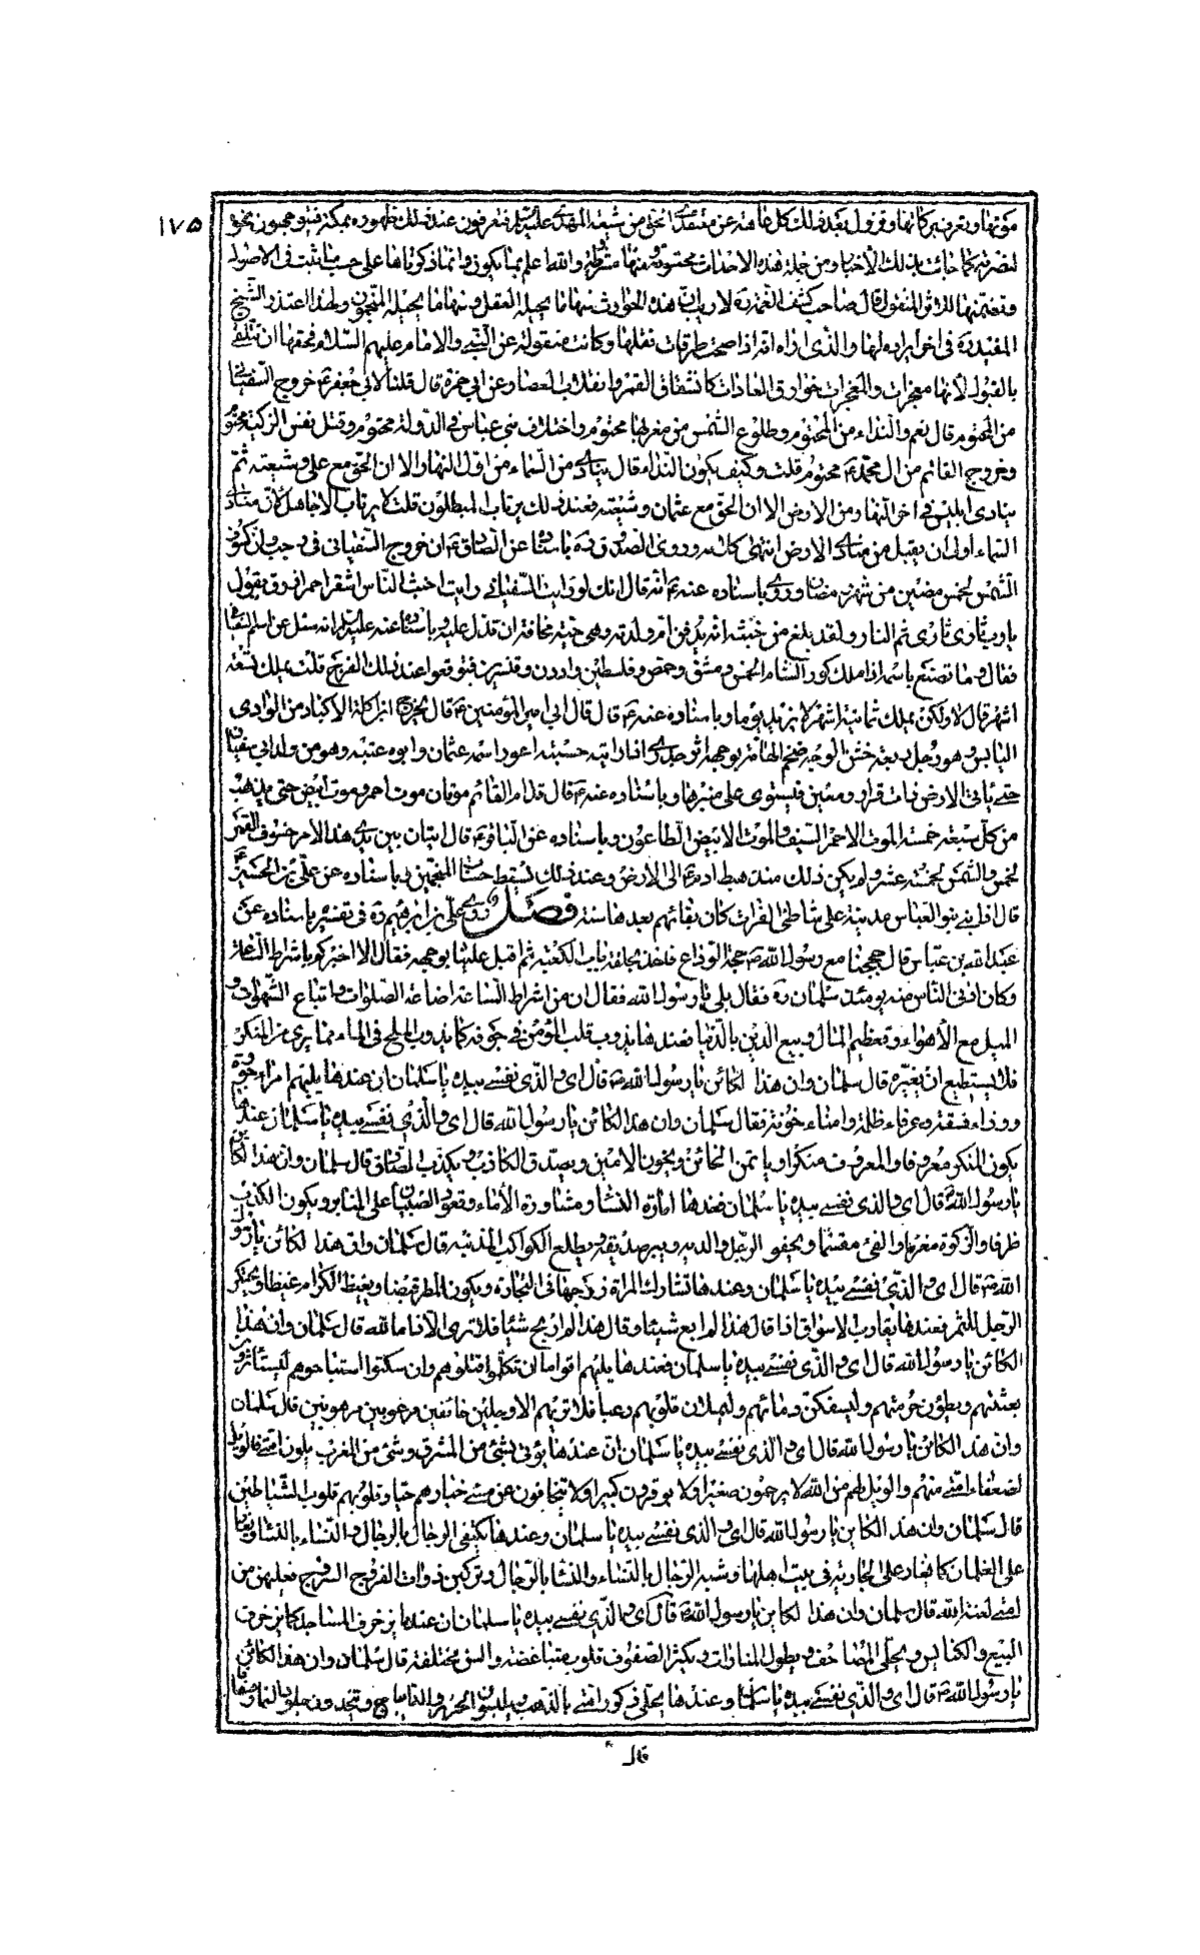 ١٧٥
موتها وتعرف بركاتها وتزول بعد ذلك كل عاهة عن معتقدي الحق من شيعة المهدي عليه السلم فيعرفون عند ذلك ظهوره بمكة فيتوجهون نحوه
لنصرته كما جائت بذلك الأخبار ومن جملة هذه الاحداث محتومة ومنها مشترطة والله اعلم بما يكون وانما ذكرناها على حسب ما ثبت في الاصول
وتضمنها الاثر المنقول قال صاحب كشف الغمة ره لا ريب ان هذه الحوادث منها ما يحيله العقل ومنها ما يحيله المنجمون ولهذا اعتذر الشيخ
المفيد ره في اخر ايراده لها والذي اراه انه اذا صحت طرقات نقلها وكانت منقولة عن النبي والامام عليهم السلام فحقها ان تتلقى
بالقبول لأنها معجزات والمعجزات خوارق العادات كانشقاق القمر وانقلاب العصا وعن ابي حمزة قال قلت لابي جعفر ع خروج السفياني
من المحتوم قال نعم والنداء من المحتوم وطلوع الشمس من مغربها محتوم واختلاف بني عباس في الدولة محتوم وقتل نفس الزكية محتوم
وخروج القائم من ال محمد ص محتوم قلت وكيف يكون النداء قال ينادي من السماء من اول النهار الا ان الحق مع علي وشيعته ثم
ينادي ابليس في اخر النهار من الارض الا ان الحق مع عثمان وشيعته فعند ذلك يرتاب المبطلون قلت لا يرتاب الا جاهل لأن منادي
السماء اولى ان يقبل من منادي الارض انتهى كلامه وروى الصدوق ره باسناده عن الصادق ع ان خروج السفياني في رجب وان كسوف
الشمس لخمس مضين من شهر رمضان وروي باسناده عنه ع انه قال انك لو رايت السفياني رايت اخبث الناس اشقر احمر ازرق يقول
يا رب ثاري ثاري ثم النار ولقد بلغ من خبثه انه يدفن ام ولد له وهي حية مخافة ان تدل عليه وباسناده عنه عليه السلم انه سئل عن اسم السفياني
فقال وما تصنع باسمه اذا ملك كور الشام الخمس دمشق وحمص وفلسطين واردن وقنسرين فتوقعوا عند ذلك الفرج قلت يملك تسعة
اشهر قال لا ولكن يملك ثمانية اشهر لا يزيد يوما وباسناده عنه ع قال قال ابي امير المؤمنين ع قال يخرج ابن اكلة الاكباد من الوادي
اليابس وهو رجل ربعة خشن الوجه ضخم الهامة بوجهه اثر جدري اذا رايته حسبته اعور اسمه عثمان وابوه عتبه وهو من ولد ابي سفيان
حتى ياتي الارض ذات قرار ومعين فيستوي على منبرها وباسناده عنه ع قال قدام القائم موتان موت احمر وموت ابيض حتى يذهب
من كل سبعة خمسة الموت الاحمر السيف والموت الابيض الطاعون وباسناده عن الباقر ع قال ايتان بين يدي هذا الأمر خسوف القمر
لخمس والشمس لخمسة عشر ولم يكن ذلك منذ هبط ادم ع الى الارض وعند ذلك يسقط حساب المنجمين وباسناده عن علي بن الحسين ع
قال اذا بنى بنو العباس مدينة على شاطئ الفرات كان بقائهم بعدها سنة فصل وروى علي بن ابرهيم ره في تفسيره باسناده عن
عبد الله بن عباس قال حججنا مع رسول الله ص حجة الوداع فاخذ بحلقة باب الكعبة ثم اقبل علينا بوجهه فقال الا اخبركم باشراط الساعة
وكان ادنى الناس منه يومئذ سلمان ره فقال بلى يا رسول الله فقال ان من اشراط الساعة اضاعة الصلوات واتباع الشهوات و
الميل مع الأهواء وتعظيم المال وبيع الدين بالدنيا فعندها يذوب قلب المؤمن في جوفه كما يذوب الملح في الماء مما يرى من المنكر
فلا يستطيع ان يغيره قال سلمان وان هذا لكائن يا رسول الله ص قال اي والذي نفسي بيده يا سلمان ان عندها يليهم امراء جورة
ووزراء فسقة وعرفاء ظلمة وامناء خونة فقال سلمان وان هذا لكائن يا رسول الله قال اي والذي نفسي بيده يا سلمان عندها
يكون المنكر معروفا والمعروف منكرا ويأتمن الخائن ويخون الامين ويصدق الكاذب ويكذب الصادق قال سلمان وان هذا لكائن
يا رسول الله قال اي والذي نفسي بيده يا سلمان فعندها امارة النساء ومشاورة الأماء وقعود الصبيان على المنابر ويكون الكذب
ظرفا والزكوة مغرما والفئ مغنما ويجفو الرجل والديه ويبر صديقه ويطلع الكواكب المذنبه قال سلمان وان هذا لكائن يا رسول
الله ص قال اي والذي نفسي بيده يا سلمان وعندها تشارك المراة زوجها في التجارة ويكون المطر قيضا ويغيظ الكرام غيظا ويحتكر
الرجل المثمر فعندها يقارب الاسواق اذا قال هذا لم ابع شيئا وقال هذا لم اربح شيئا فلا ترى الا ذاما لله قال سلمان وان هذا
لكائن يا رسول الله قال اي والذي نفسي بيده يا سلمان فعندها يليهم اقوام ان تكلموا قتلوهم وان سكتوا استباحوهم ليستأثرون
بفيئهم وليطؤن حرمتهم وليسفكن دمائهم وليملان قلوبهم رعبا فلا تريهم الا وجلين خائفين مرعوبين مرهوبين قال سلمان
وان هذا لكائن يا رسول الله قال اي والذي نفسي بيده يا سلمان ان عندها يؤتى بشئ من المشرق وشئ من المغرب يلون امتي فالويل
لضعفاء امتي منهم والويل لهم من الله لا يرحمون صغيرا ولا يوقرون كبيرا ولا يتجافون عن مسئ خبارهم جثا وقلوبهم قلوب الشياطين
قال سلمان وان هذا لكائن يا رسول الله قال اي والذي نفسي بيده يا سلمان وعندها يكتفي الرجال بالرجال والنساء بالنساء ويغار
على الغلمان كما يغار على الجارية في بيت اهلها وشبه الرجال بالنساء والنساء بالرجال وتركبن ذوات الفروج السروج فعليهن من
امتي لعنة الله قال سلمان وان هذا لكائن يا رسول الله ص قال اي والذي نفسي بيده يا سلمان ان عندها يزخرف المساجد كما يزخرف
البيع والكنايس ويحلى المصاحف ويطول المنارات ويكثر الصفوف قلوب متباغضة والسن مختلفة قال سلمان وان هذا لكائن
يا رسول الله ص قال اي والذي نفسي بيده يا سلمان وعندها يحلى ذكور امتي بالذهب ويلبسون الحرير والديباج ويتخذون جلود النمار صفاقا
قال